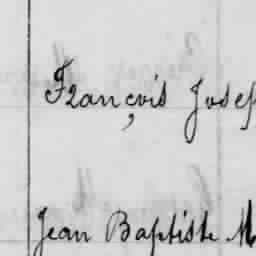 François Josep
Jean Baptiste M